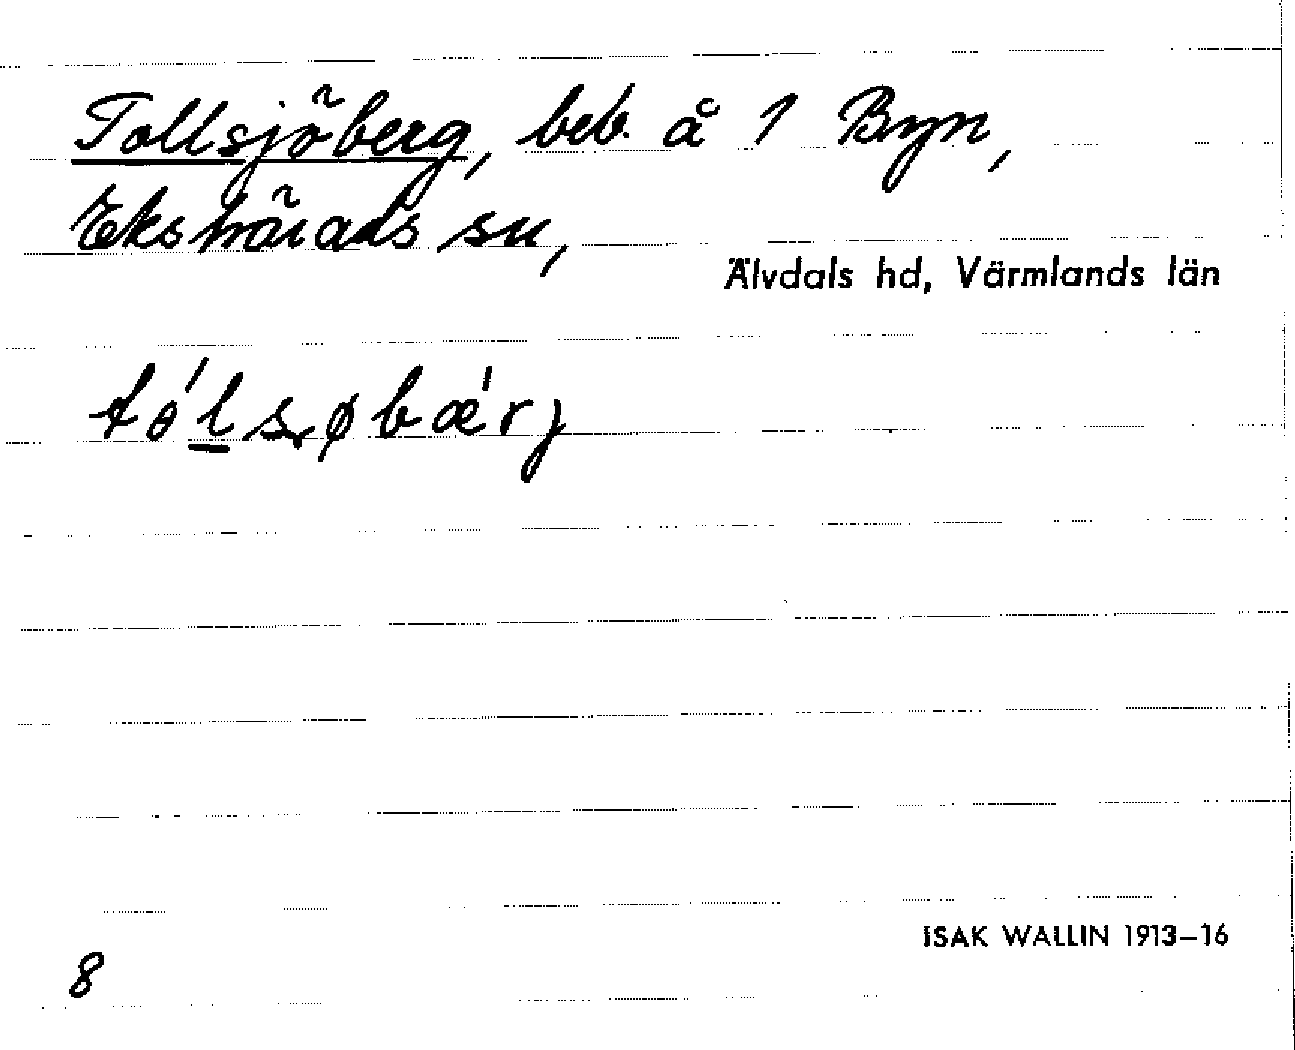 Tollsjöberg, beb. å 1 Byn,
Ekshärads sn,
Älvdals hd, Värmlands län
tɵ́lsøbǽrj
ISAK WALLIN 1913–16
8